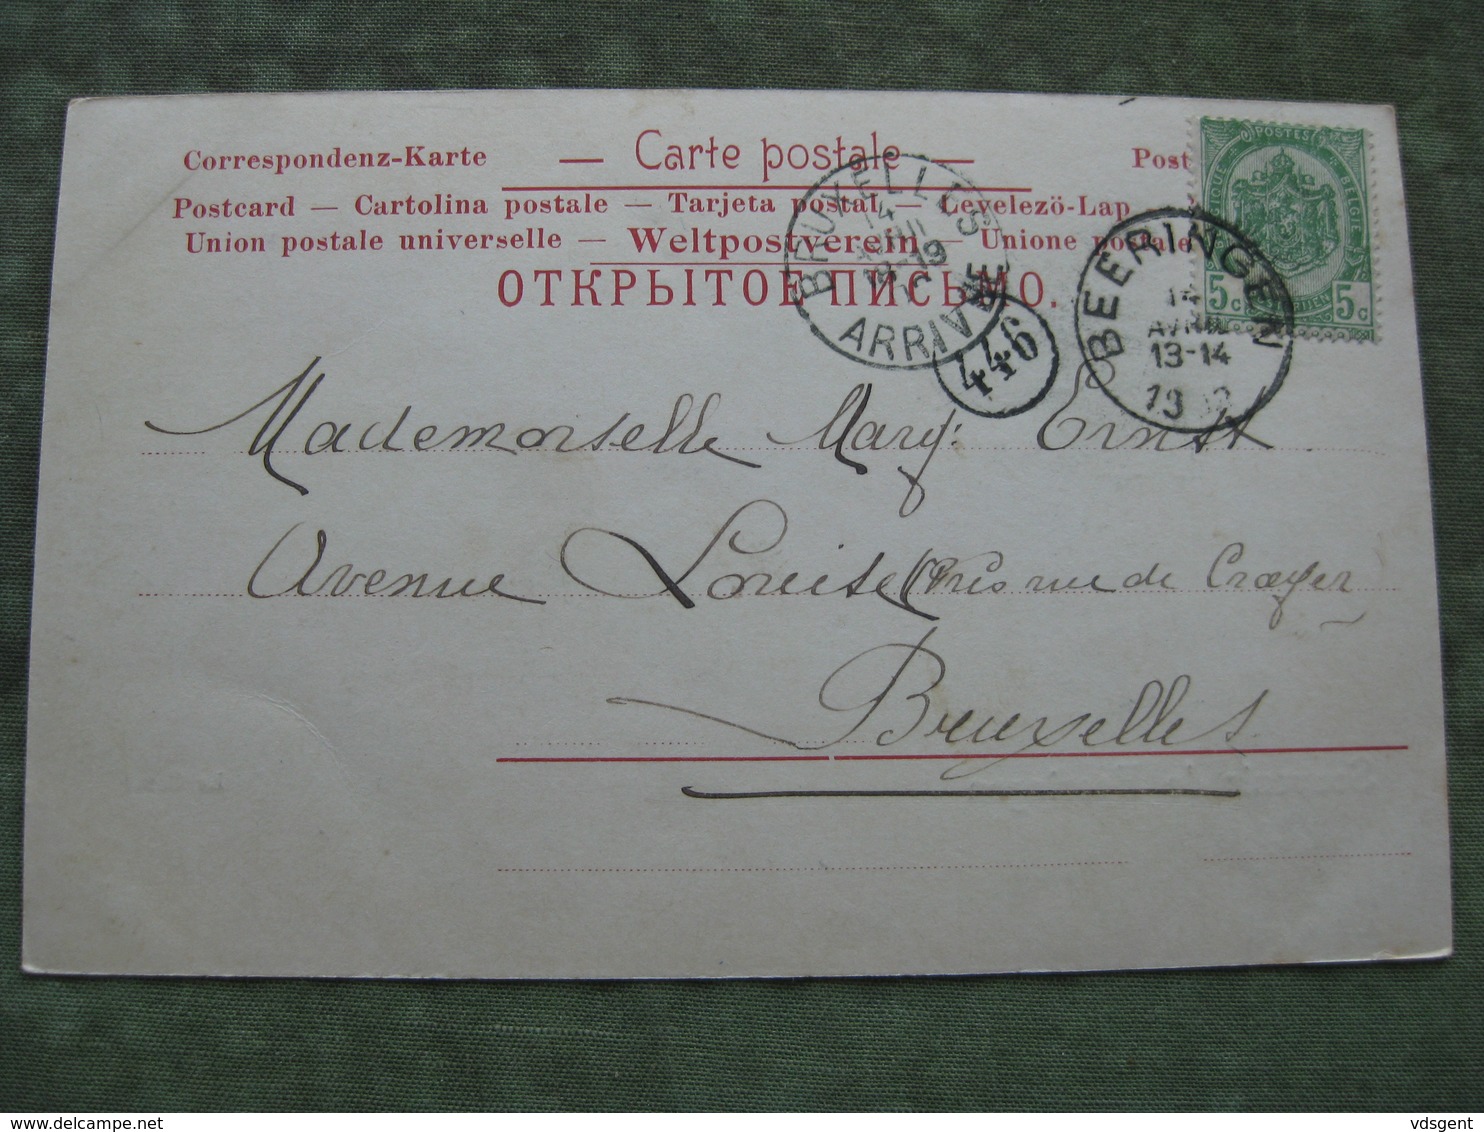 Correspondenz-Karte — Carte postale — Post
Postcard — Cartolina postale — Tarjeta postal — Levelezö-Lap
Union postale universelle — Weltpostverein — Unione postale
ОТКРЫТОЕ ПИСЬМО.
POSTES
BELGIE
5c 5c
BRUXELLES
14
ARRIVEE
446
BEERINGEN
14
AVRIL
13-14
Mademoiselle Mary Ernst
Avenue Louise (Près rue de Crayer
Bruxelles
delcampe.net
vdsgent